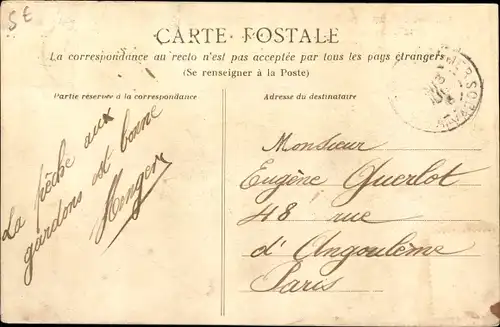 SE
CARTE POSTALE
La correspondance au recto n'est pas acceptée par tous les pays étrangers
(Se renseigner à la Poste)
Partie réservée à la correspondance
Adresse du destinataire
La pêche aux
gardons est bonne
Menger
Monsieur
Eugène Querlot
48 rue
d'Angoulême
Paris